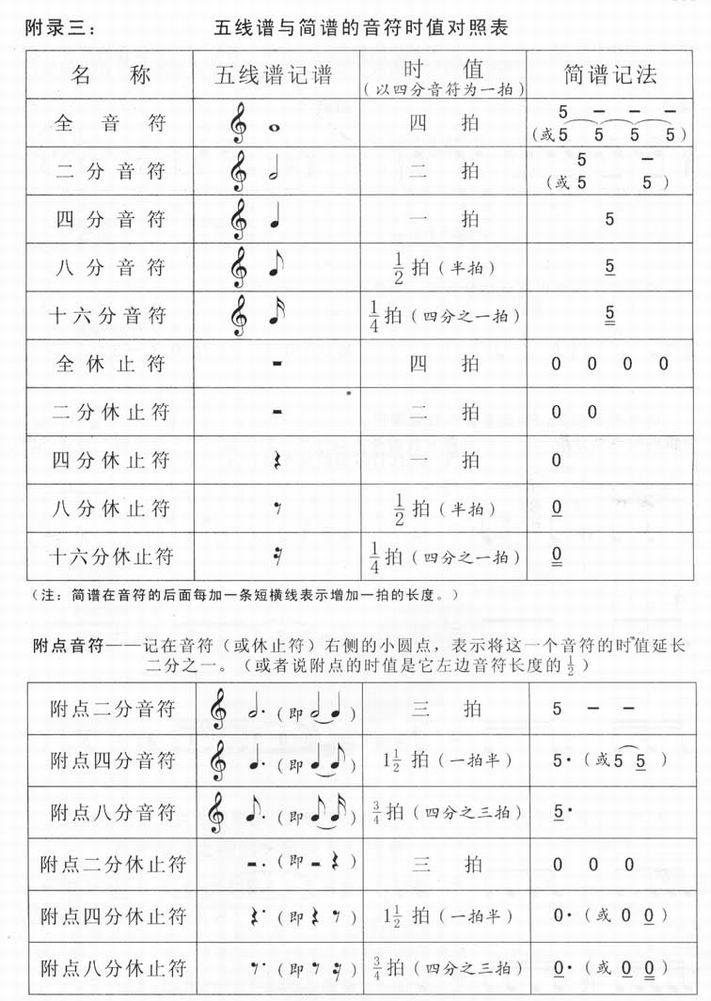 附录三： 五线谱与简谱的音符时值对照表
名 称 五线谱记谱 时 值 简谱记法
(以四分音符为一拍)
全 音 符 四 拍 5 — — —
(或5 5 5 5)
二 分 音 符 二 拍 5 —
(或 5 5 )
四 分 音 符 一 拍 5
八 分 音 符 1/2 拍 (半拍) 5
十六分音符 1/4 拍 (四分之一拍) 5
全 休 止 符 四 拍 0 0 0 0
二分休止符 二 拍 0 0
四分休止符 一 拍 0
八分休止符 1/2 拍 (半拍) 0
十六分休止符 1/4 拍 (四分之一拍) 0
(注：简谱在音符的后面每加一条短横线表示增加一拍的长度。)
附点音符——记在音符（或休止符）右侧的小圆点，表示将这一个音符的时值延长
二分之一。（或者说附点的时值是它左边音符长度的1/2）
附点二分音符 (即 ) 三 拍 5 — —
附点四分音符 (即 ) 1 1/2 拍 (一拍半) 5· (或5 5 )
附点八分音符 (即 ) 3/4 拍 (四分之三拍) 5·
附点二分休止符 (即 ) 三 拍 0 0 0
附点四分休止符 (即 ) 1 1/2 拍 (一拍半) 0· (或 0 0 )
附点八分休止符 (即 ) 3/4 拍 (四分之三拍) 0· (或 0 0 )